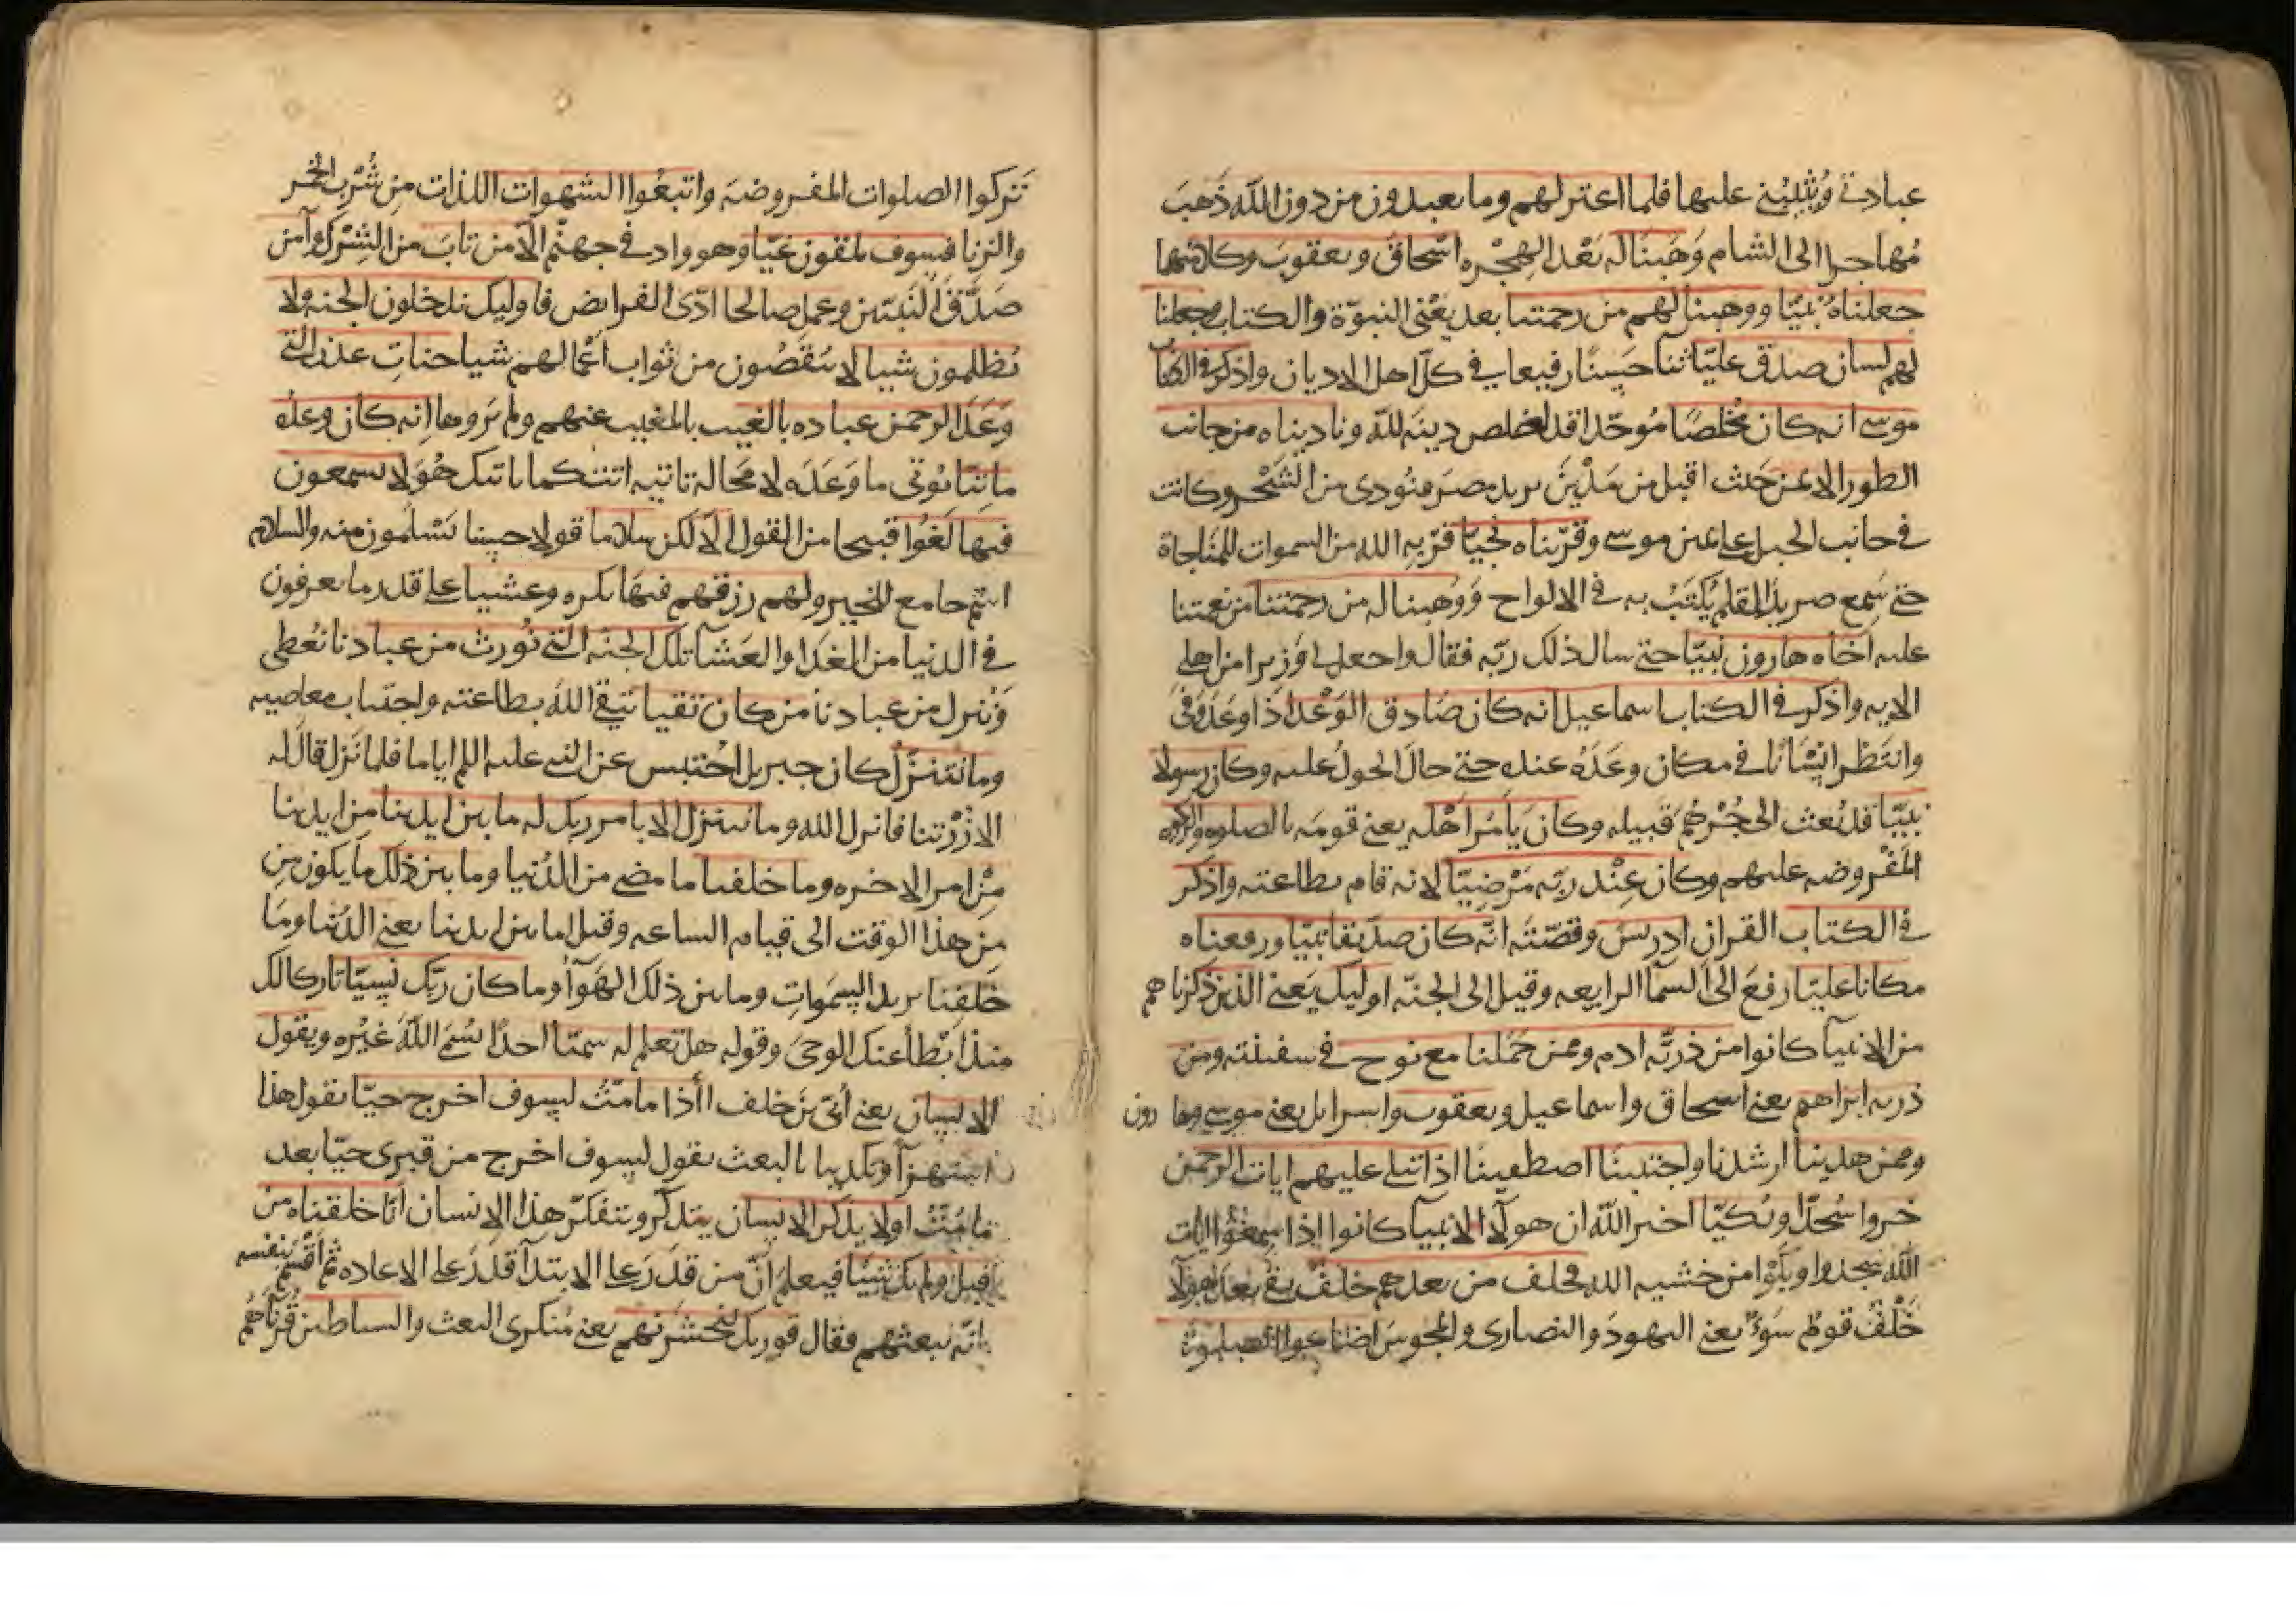 عبادتي ويثيبني عليها فلما اعتزلهم وما يعبدون من دون الله ذهب
مهاجرا الى الشام وهبنا له بعد الهجره اسحاق ويعقوب وكلا منهما
جعلناه نبيا ووهبنا لهم من رحمتنا بعد يعني النبوة والكتاب وجعلنا
لهم لسان صدق عليا ثنا حسنا رفيعا في كل اهل الاديان واذكر في الكتاب
موسى انه كان مخلصا موحدا قد اخلص دينه لله وناديناه من جانب
الطور الايمن حيث اقبل من مدين يريد مصر فنودي من الشجره وكانت
في جانب الجبل على يمين موسى وقربناه نجيا قربه الله من السموات للمناجاة
حتى سمع صرير القلم يكتب به في الالواح ووهبنا له من رحمتنا من نعمتنا
عليه اخاه هارون نبيا حتى سال ذلك ربه فقال واجعل لي وزيرا من اهلي
الايه واذكر في الكتاب اسماعيل انه كان صادق الوعد اذا وعد وفى
وانتظر انسانا في مكان وعده عنده حتى حال الحول عليه وكان رسولا
نبيا قد بعث الى جرهم قبيله وكان يامر اهله يعني قومه بالصلوه والزكوه
المفروضه عليهم وكان عند ربه مرضيا لانه قام بطاعته واذكر
في الكتاب القران ادريس وقصته انه كان صديقا نبيا ورفعناه
مكانا عليا رفع الى السما الرابعه وقيل الى الجنه اوليك يعني الذين ذكرناهم
من الانبيا كانوا من ذريه ادم وممن حملنا مع نوح في سفينته ومن
ذريه ابراهيم يعني اسحاق واسماعيل ويعقوب واسرايل يعني موسى وهارون
وممن هدينا ارشدنا واجتبينا اصطفينا اذا تتلى عليهم ايات الرحمن
خروا سجدا وبكيا اخبر الله ان هولا الانبيا كانوا اذا سمعوا ايات
الله سجدوا وبكوا من خشيه الله فخلف من بعدهم خلف بقي بعد هولا
خلف قوم سوء يعني اليهود والنصارى والمجوس اضاعوا الصلوة
تركوا الصلوات المفروضة واتبعوا الشهوات اللذات من شرب الخمر
والزنا فسوف يلقون غيا وهو واد في جهنم الا من تاب من الشرك وامن
صدق النبيين وعمل صالحا ادى الفرايض فاوليك يدخلون الجنه ولا
يظلمون شيا لا ينقصون من ثواب اعمالهم شيا جنات عدن التي
وعد الرحمن عباده بالغيب بالمغيب عنهم ولم يروها انه كان وعده
ماتيا يوتى ما وعده لا محالة تاتيه انت كما ياتيك هو لا يسمعون
فيها لغوا قبيحا من القول الا لكن سلاما قولا حسنا يسلمون منه والسلام
اسم جامع للخير ولهم رزقهم فيها بكره وعشيا على قدر ما يعرفون
في الدنيا من الغدا والعشا تلك الجنه التي نورث من عبادنا نعطي
وننزل من عبادنا من كان تقيا يتقي الله بطاعته واجتناب معاصيه
وما نتنزل كان جبريل احتبس عن النبي عليه السلم اياما فلما نزل قال له
الا زرتنا فانزل الله وما نتنزل الا بامر ربك له ما بين ايدينا من ايدينا
من امر الاخره وما خلفنا ما مضى من الدنيا وما بين ذلك ما يكون من
من هذا الوقت الى قيام الساعه وقيل ما بين ايدينا يعني الدنيا وما
خلفنا يريد السموات وما بين ذلك الهوا وما كان ربك نسيا تاركا لك
منذ ابطا عنك الوحي وقوله هل تعلم له سميا احدا يسمى الله غيره ويقول
الانسان يعني ابي بن خلف ااذا ما مت لسوف اخرج حيا يقول هذا
استهزآ وتكذيبا بالبعث يقول لسوف اخرج من قبري حيا بعد
ما مت اولا يذكر الانسان يتذكر ويتفكر هذا الانسان انا خلقناه من
قبل ولم يك شيا فيعلم ان من قدر على الابتدآ قدر على الاعاده ثم اقسم بنفسه
انه يبعثهم فقال فوربك لنحشرنهم يعني منكري البعث والشياطين قرناهم